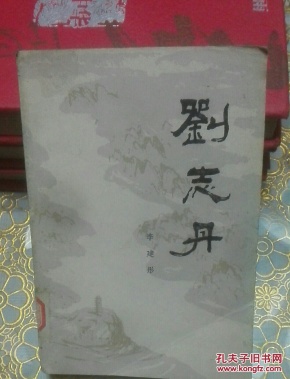 劉志丹
李建彤
孔夫子旧书网
kongfz.com